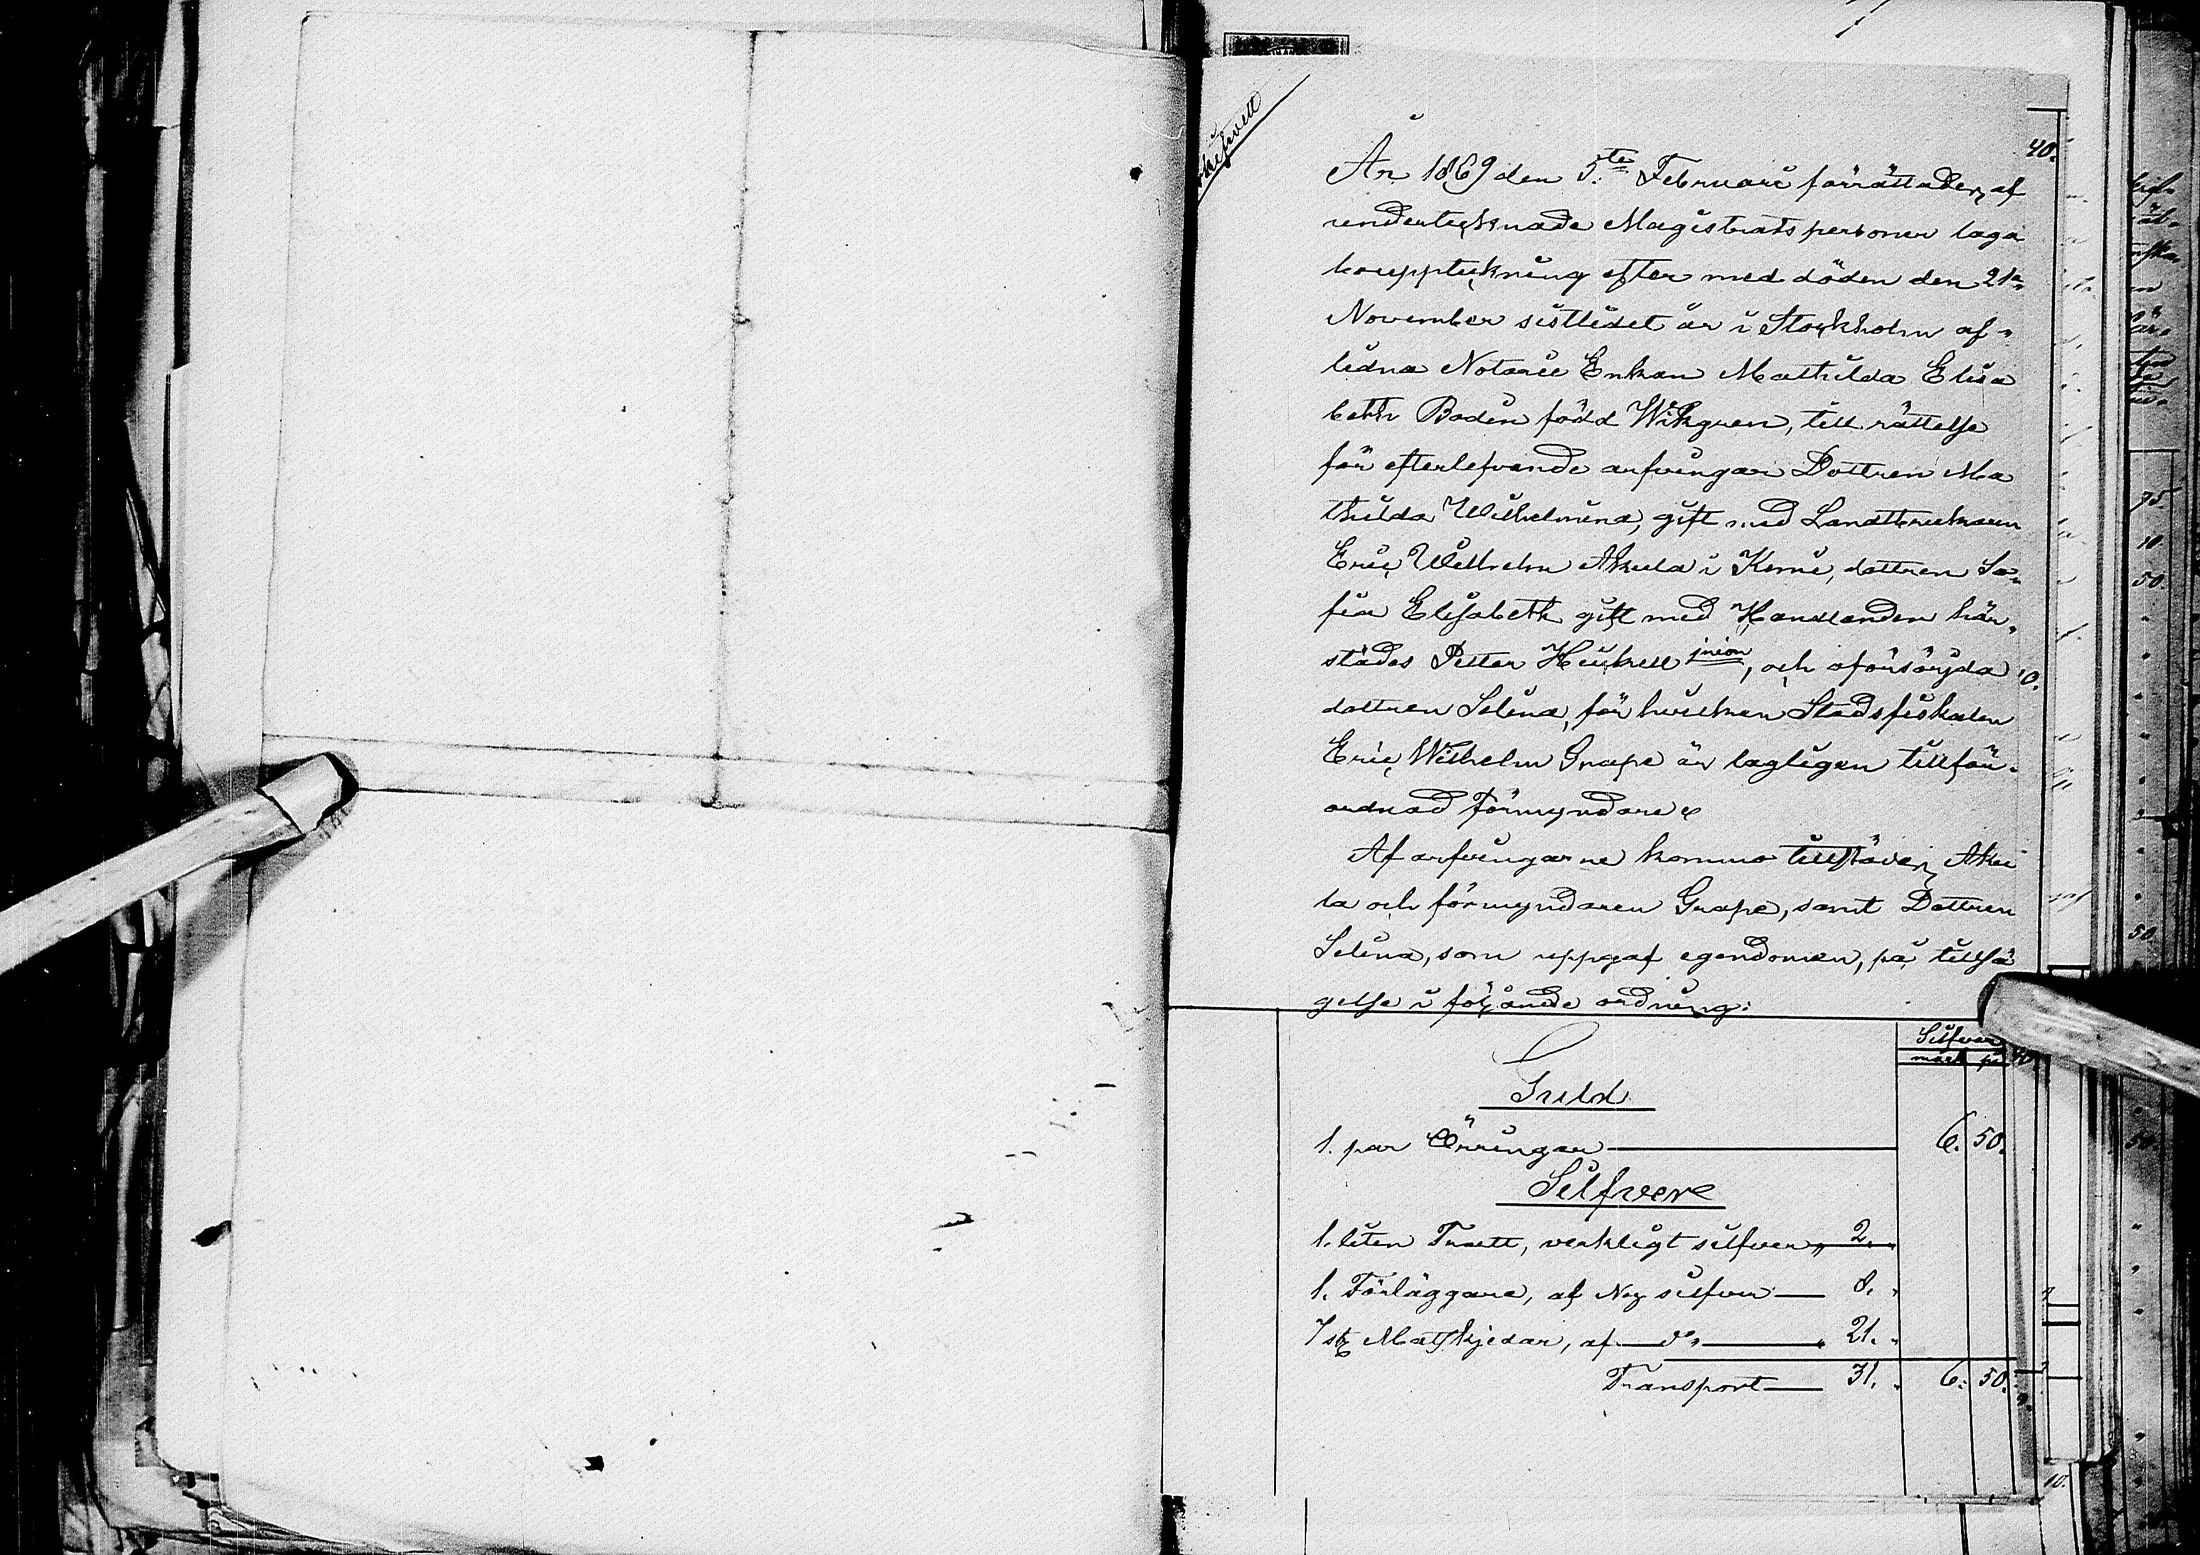 År 1869 den 5te Februari förrättades af
undertecknade Magistratspersoner laga
bouppteckning efter med döden den 21e
November sistledet år i Stockholm af-
ledna Notarie Enkan Mathilda Elisa
beth Bodén född Wikgren, till rättelse
för efterlefvande arfvingar Dottren Ma
thilda Wilhelmina, gift med Landtbrukaren
Eric Wilhelm Akula i Kemi, dottren So-
fia Elisabeth gift med Handlanden här-
städes Petter Heickell junior, och oförsörjda
dottren Selina, för hvilken Stadsfiskalen
Eric Wilhelm Grape är lagligen tillför-
ordnad Förmyndare
Af arfvingarne kommo tillstädes Aku
la och förmyndaren Grape, samt Dottren
Selina, som uppgaf egendomen, på tillsä
gelse i följande ordning:
Silfver
mark pi
Guld
1. par Örringar 6. 50.
Silfver
1. liten Tratt, verkligt silfver 2. "
1. Förläggare, af Ny silfver 8. "
7 st Matskjedar, af do 21. "
Transport 31. " 6. 50.